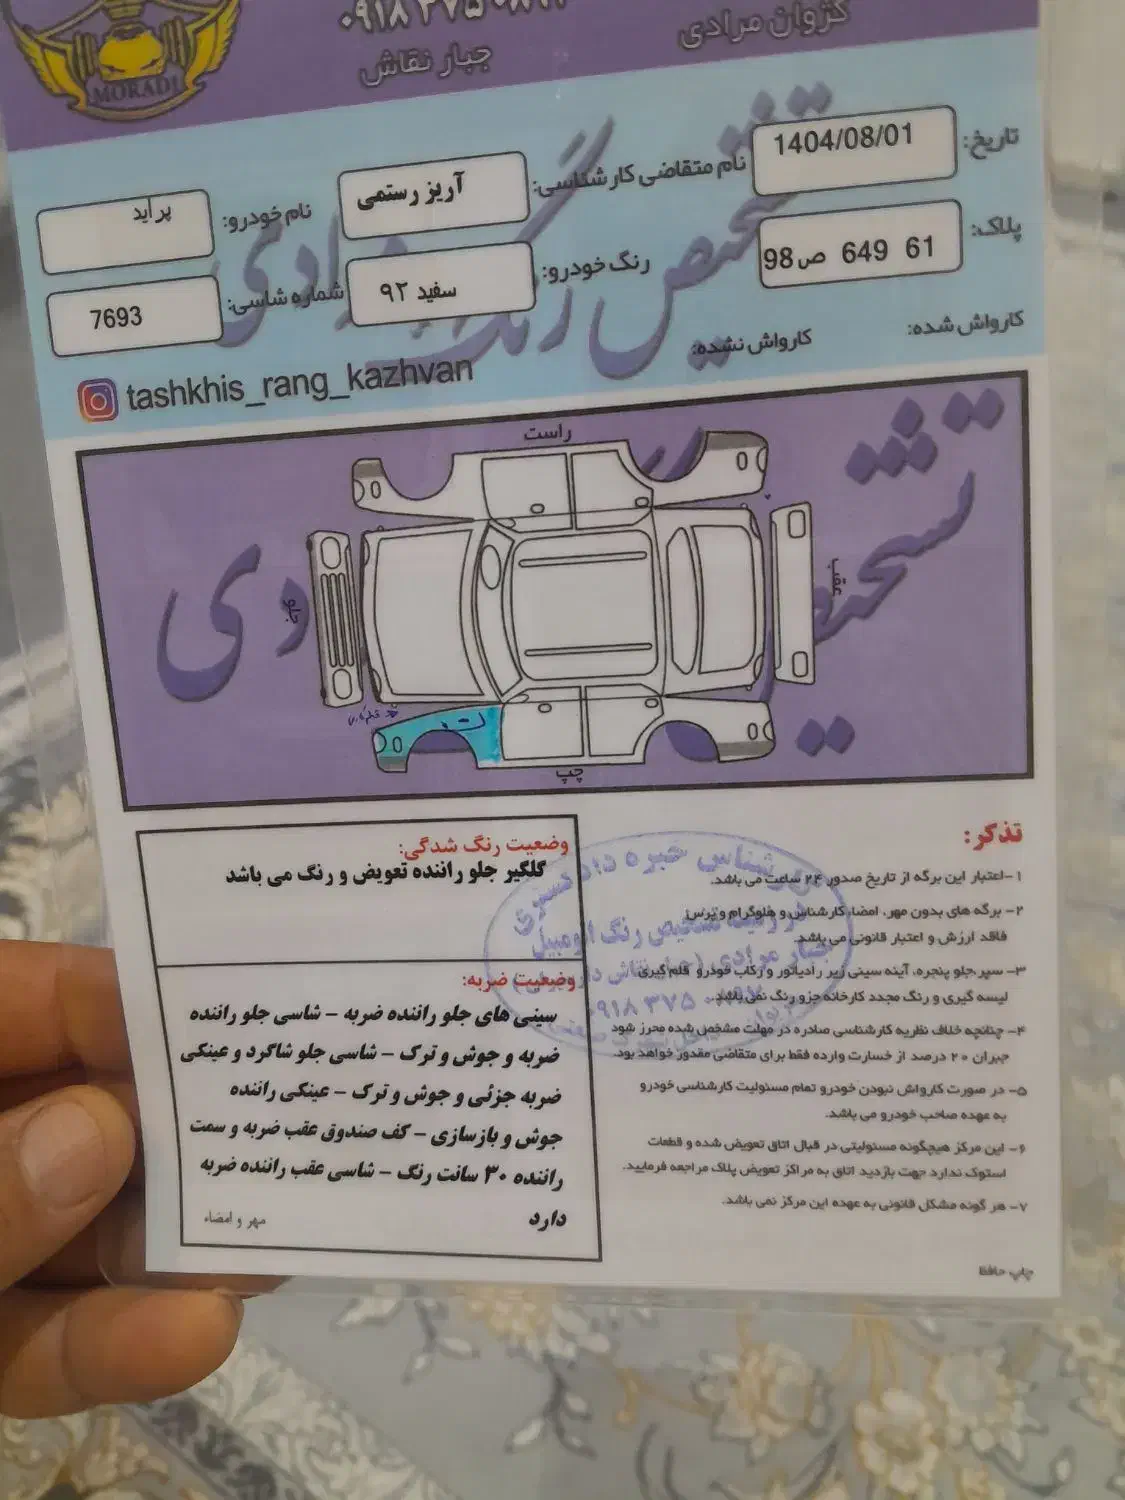 کژوان مرادی
جبار نقاش
MORADI
تاریخ: 1404/08/01
نام متقاضی کارشناسی: آریز رستمی
نام خودرو: پراید
پلاک: 98ص 649 61
رنگ خودرو: سفید ۹۲
شماره شاسی: 7693
کارواش شده:
کارواش نشده:
tashkhis_rang_kazhvan
راست
جلو
عقب
چپ
وضعیت رنگ شدگی:
گلگیر جلو راننده تعویض و رنگ می باشد
وضعیت ضربه:
سینی های جلو راننده ضربه - شاسی جلو راننده
ضربه و جوش و ترک - شاسی جلو شاگرد و عینکی
ضربه جزئی و جوش و ترک - عینکی راننده
جوش و بازسازی - کف صندوق عقب ضربه و سمت
راننده ۳۰ سانت رنگ - شاسی عقب راننده ضربه
دارد
مهر و امضاء
تذکر:
۱- اعتبار این برگه از تاریخ صدور ۲۴ ساعت می باشد.
۲- برگه های بدون مهر، امضا، کارشناس و هلوگرام و پرس
فاقد ارزش و اعتبار قانونی می باشد.
۳- سپر، جلو پنجره، آینه سینی زیر رادیاتور و رکاب خودرو قلم گیری
لیسه گیری و رنگ مجدد کارخانه جزو رنگ نمی باشد.
۴- چنانچه خلاف نظریه کارشناسی صادره در مهلت مشخص شده محرز شود
جبران ۲۰ درصد از خسارت وارده فقط برای متقاضی مقدور خواهد بود.
۵- در صورت کارواش نبودن خودرو تمام مسئولیت کارشناسی خودرو
به عهده صاحب خودرو می باشد.
۶- این مرکز هیچگونه مسئولیتی در قبال اتاق تعویض شده و قطعات
استوک ندارد جهت بازدید اتاق به مراکز تعویض پلاک مراجعه فرمایید.
۷- هر گونه مشکل قانونی به عهده این مرکز نمی باشد.
چاپ حافظ